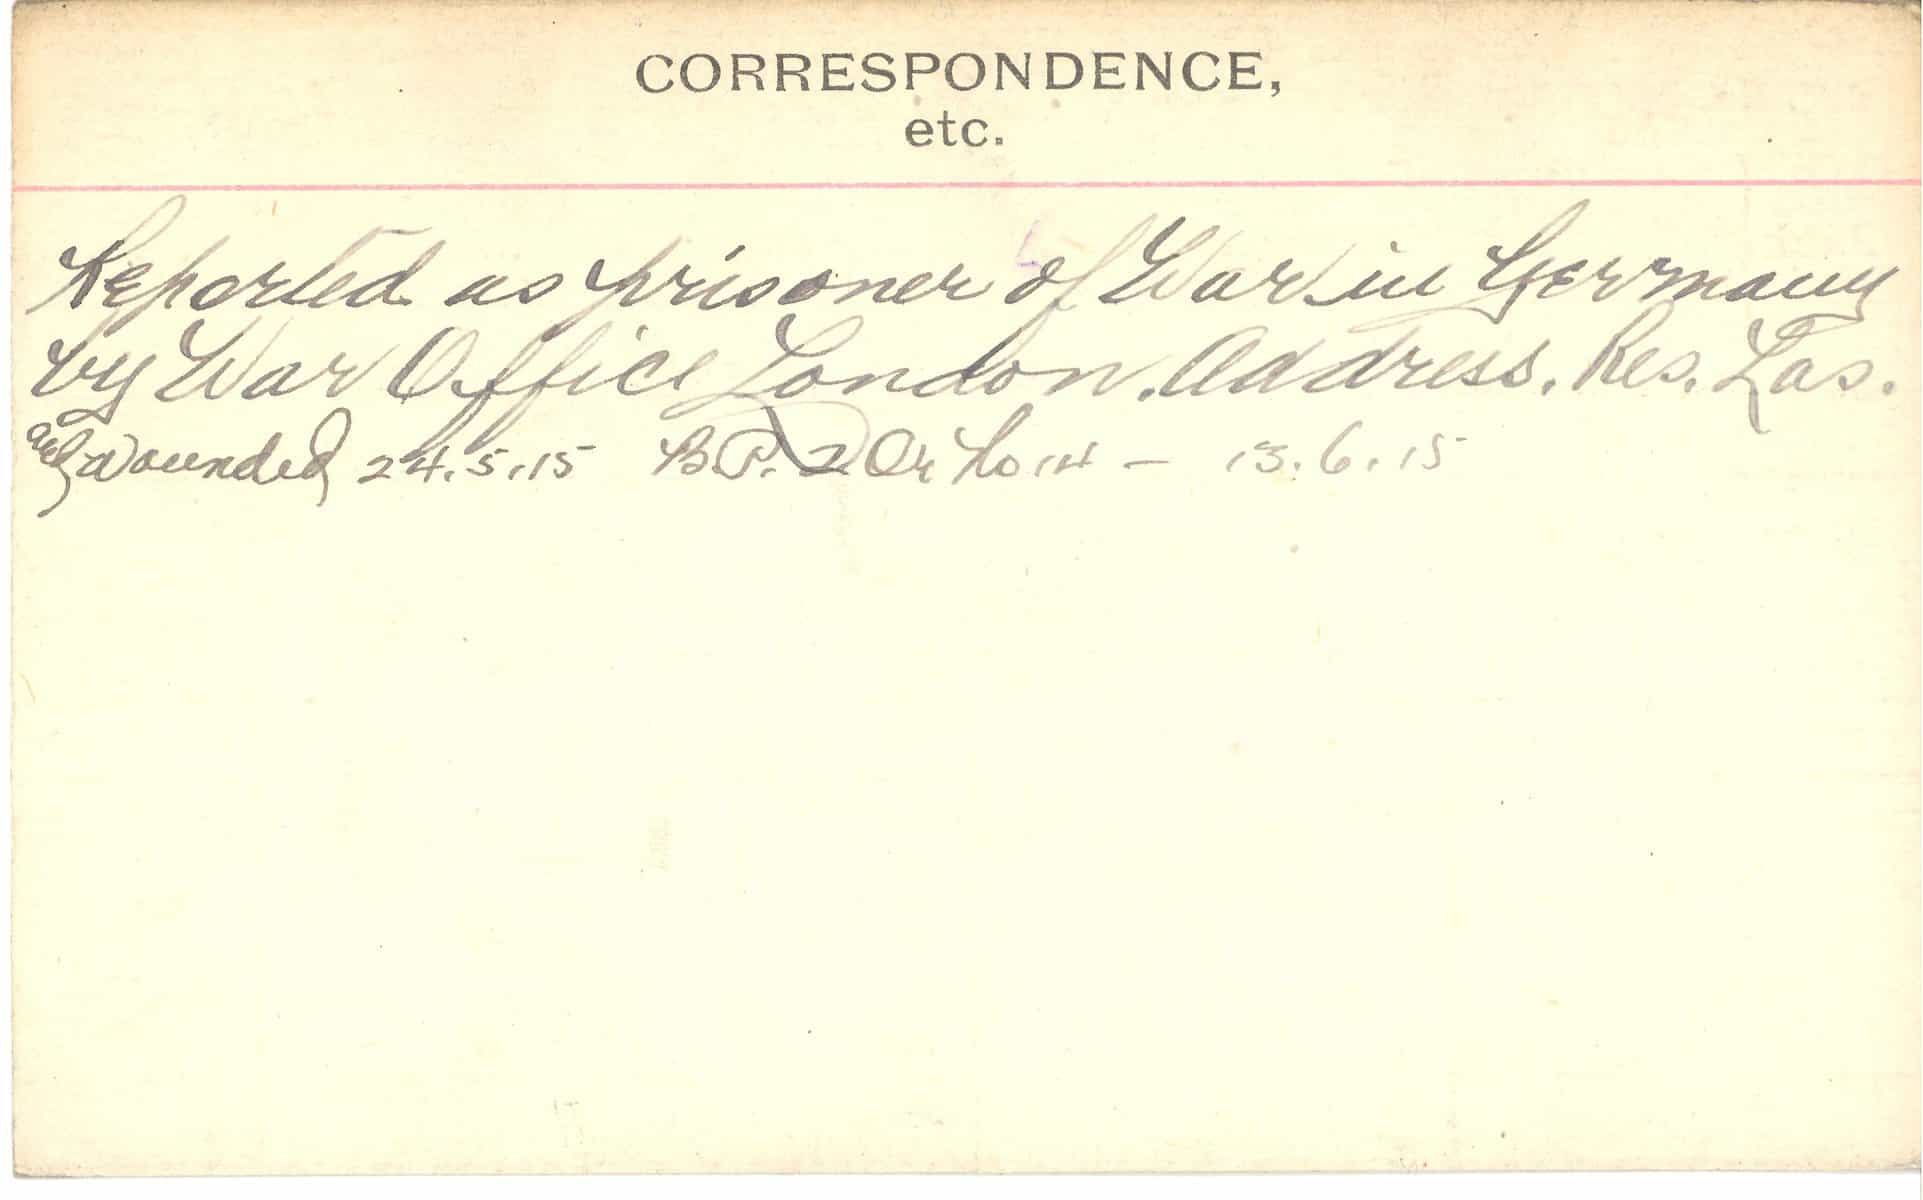 CORRESPONDENCE,
etc.
Reported as prisoner of War in Germany
by War Office London. Address. Res. Las.
and wounded 24.5.15 B.P. 2 Or No 14 — 13.6.15